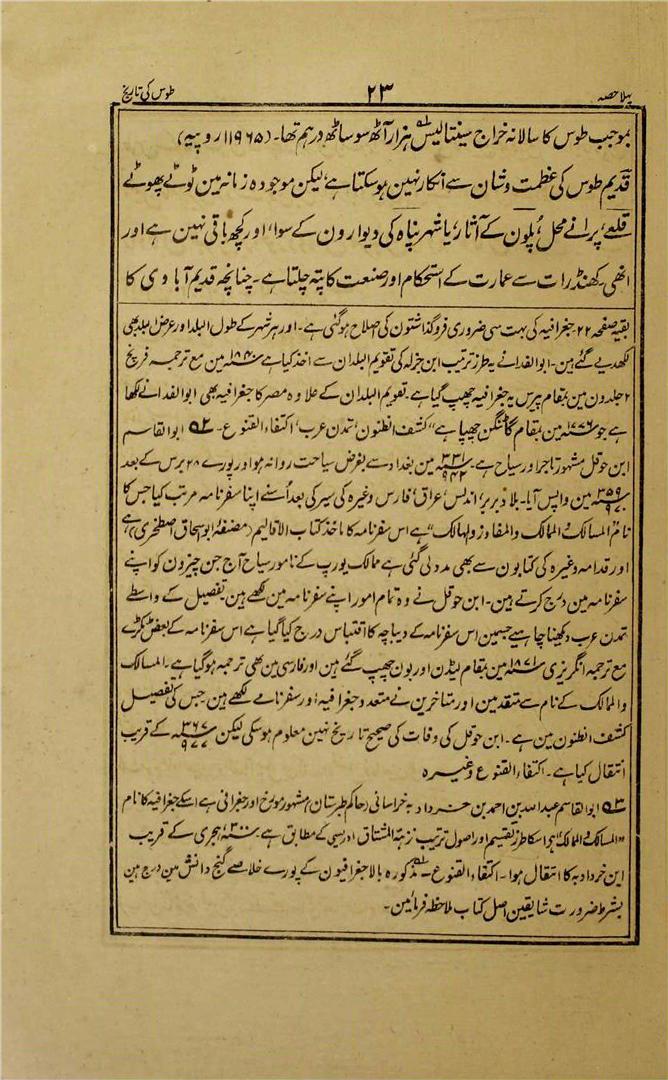 پہلا حصہ ۲۳ طوس کی تاریخ
بموجب طوس کا سالانہ خراج سینتالیس ہزار آٹھ سو ساٹھ درہم تھا۔ (۱۱۹۶۵ روپیہ)
قدیم طوس کی عظمت و شان سے انکار نہین ہو سکتا ہے، لیکن موجودہ زمانہ مین ٹوٹے پھوٹے
قلعے، پرانے محل، پلون کے آثار، یا شہر پناہ کی دیوارون کے سوا، اور کچھ باقی نہین ہے اور
انھی کھنڈرات سے عمارت کے استحکام اور صنعت کا پتہ چلتا ہے۔ چنانچہ قدیم آبادی کا
بقیہ صفحہ ۲۲۔ جغرافیہ کی بہت سی ضروری فروگذاشتون کی اصلاح ہو گئی ہے۔ اور ہر شہر کے طول البلد اور عرض البلد بھی
لکھدیے گئے ہین۔ ابوالفدا نے یہ طرز ترتیب ابن جزلہ کی تقویم البلدان سے اخذ کیا ہے ۱۸۴۰ء مین مع ترجمہ فرنچ
۲ جلدون مین بمقام پیرس یہ جغرافیہ چھپ گیا ہے۔ تقویم البلدان کے علاوہ مصر کا جغرافیہ بھی ابوالفدا نے لکھا
ہے جو ۱۷۷۶ء مین بمقام گاٹنگن چھپا ہے" کشف الظنون، تمدن عرب، اکتفاء القنوع۔ ۵۲ ابوالقاسم
ابن حوقل مشہور تاجر اور سیاح ہے۔ ۳۳۱ھ ۹۴۲ء مین بغداد سے بغرض سیاحت روانہ ہوا اور پورے ۲۸ برس کے بعد
۳۵۹ھ مین واپس آیا۔ بلاد بربر، اندلس، عراق، فارس وغیرہ کی سیر کی بعد اُسنے اپنا سفرنامہ مرتب کیا جس کا
نام "المسالک والممالک والمفاوز والمہالک" ہے اس سفرنامہ کا ماخذ کتاب الاقالیم (مصنفہ ابو اسحاق اصطخری) ہے
اور قدامہ وغیرہ کی کتابون سے بھی مدد لی گئی ہے ممالک یورپ کے نامور سیاح آج جن چیزون کو اپنے
سفرنامہ مین درج کرتے ہین۔ ابن حوقل نے وہ تمام امور اپنے سفرنامہ مین لکھے ہین تفصیل کے واسطے
تمدن عرب دیکھنا چاہیے جسمین اس سفرنامہ کے دیباچہ کا اقتباس درج کیا گیا ہے اس سفرنامہ کے بعض ٹکڑے
مع ترجمہ انگریزی ۱۸۷۱ء مین بمقام لیڈن اور بون چھپ گئے ہین اور فارسی مین بھی ترجمہ ہو گیا ہے۔ المسالک
والممالک کے نام سے متقدمین اور متاخرین نے متعدد جغرافیہ اور سفرنامے لکھے ہین جس کی تفصیل
کشف الظنون مین ہے۔ ابن حوقل کی وفات کی صحیح تاریخ نہین معلوم ہو سکی لیکن ۳۶۷ھ ۹۷۷ء کے قریب
انتقال کیا ہے۔ اکتفاء القنوع وغیرہ
۵۳ ابوالقاسم عبداللہ بن احمد بن خرداد بہ خراسانی (حاکم طبرستان) مشہور مورخ اور جغرافی ہے اسکے جغرافیہ کا نام
"المسالک والممالک" ہے اسکا طرز تقسیم اور اصول ترتیب نزہۃ المشتاق ادریسی کے مطابق ہے۔ ۳۰۰ھ ہجری کے قریب
ابن خرداد بہ کا انتقال ہوا۔ اکتفاء القنوع۔ مذکورہ بالا جغرافیون کے پورے خلاصے گنج دانش مین درج ہین
بشرط ضرورت شایقین اصل کتاب ملاحظہ فرمائین۔